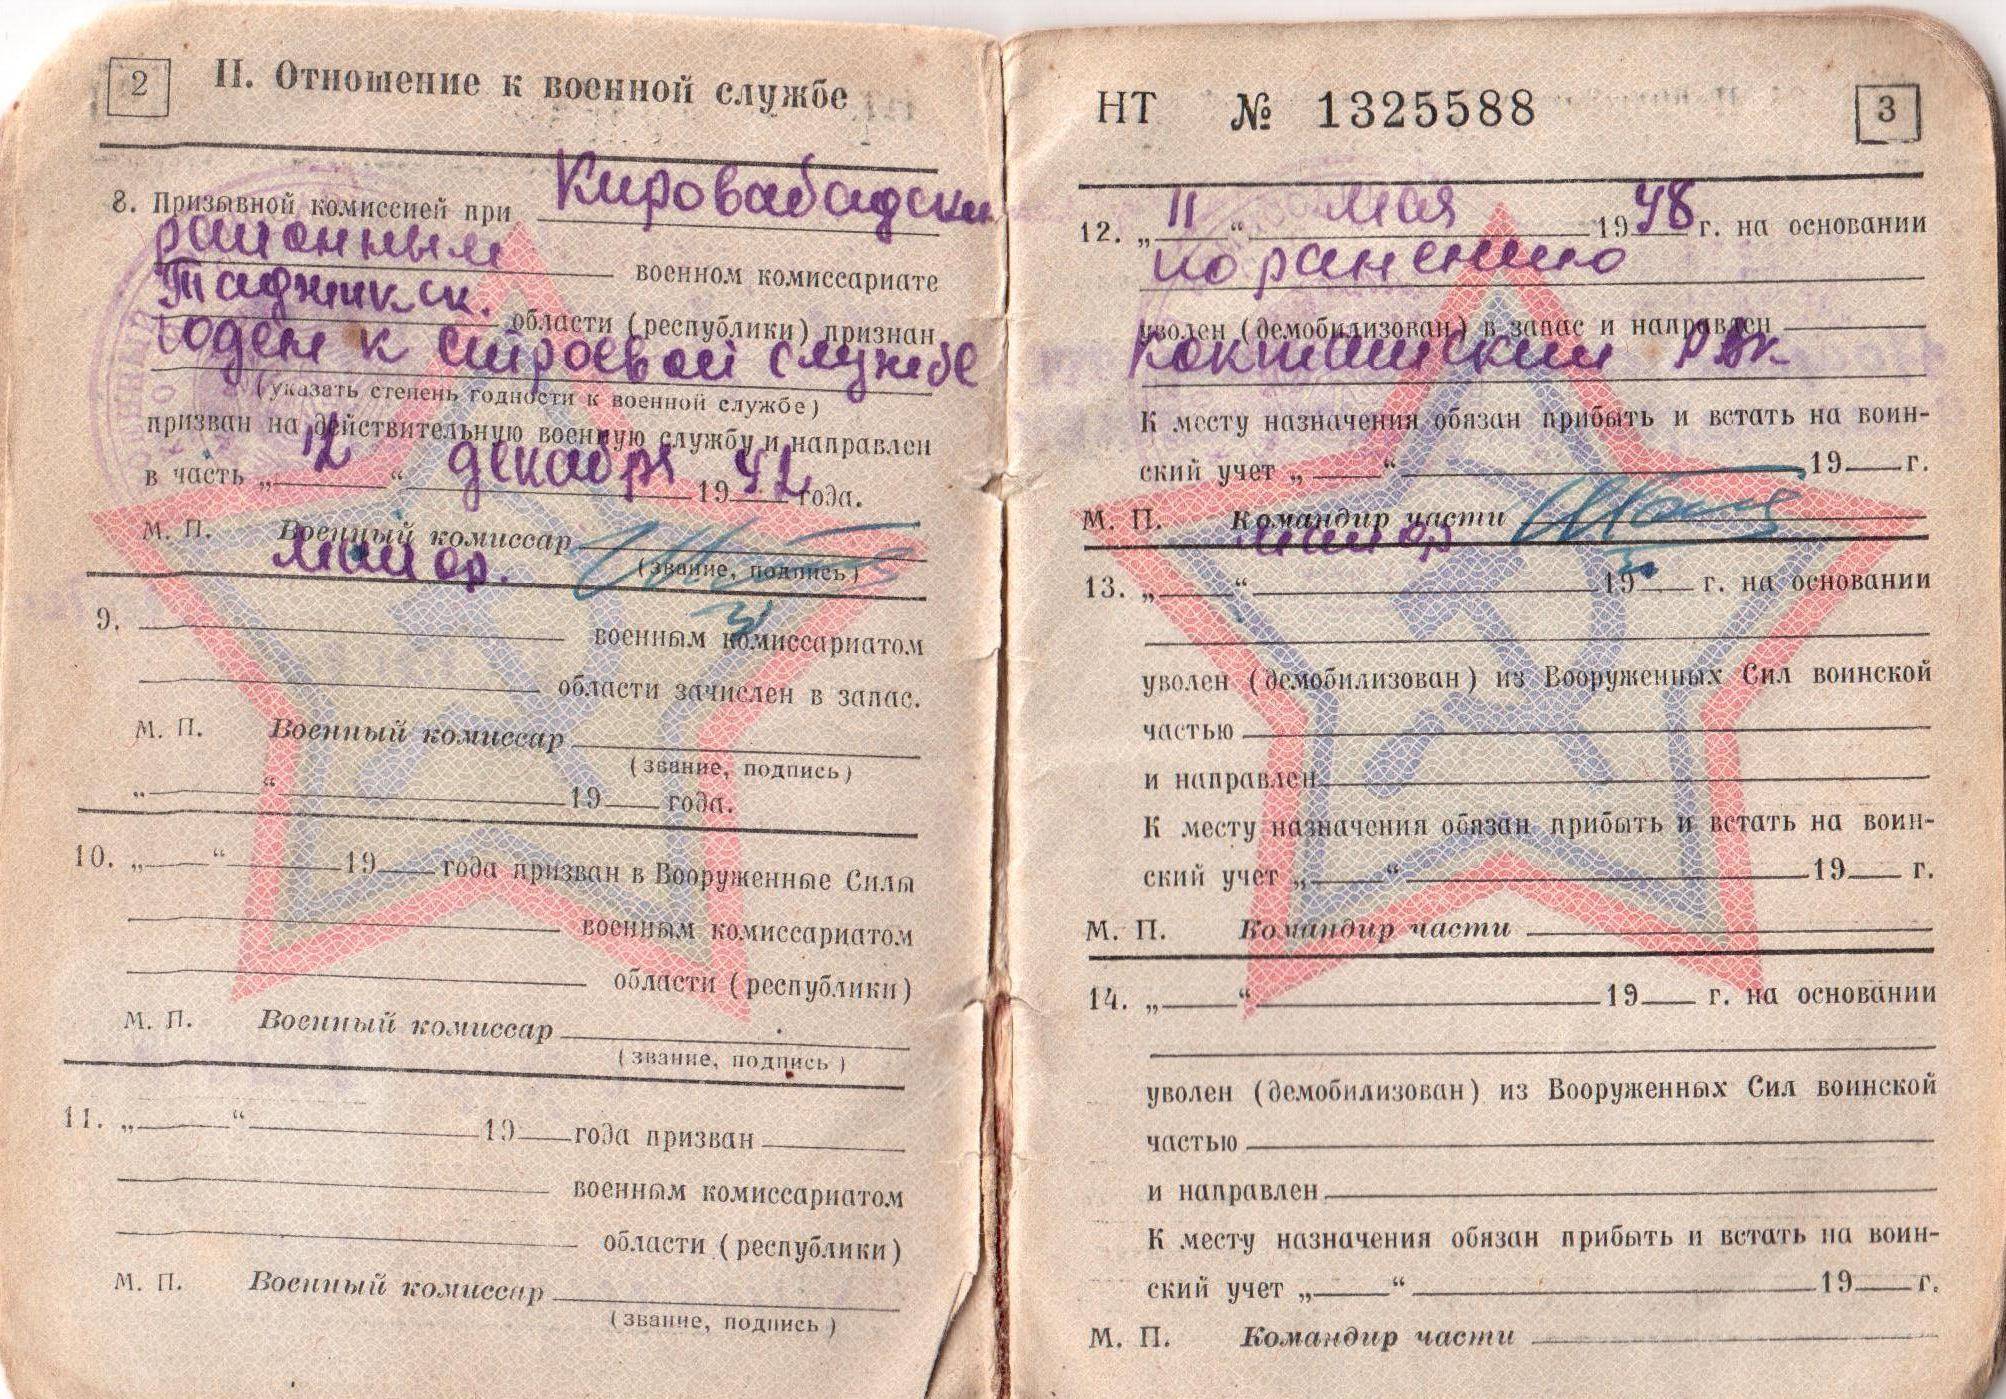 2
II. Отношение к военной службе
8. Призывной комиссией при Кировабадским
районным военном комиссариате
Таджикск. области (республики) признан
годен к строевой службе
(указать степень годности к военной службе)
призван на действительную военную службу и направлен
в часть „12“ декабря 1942 года.
М. П. Военный комиссар
майор. (звание, подпись)
9. военным комиссариатом
области зачислен в запас.
М. П. Военный комиссар
(звание, подпись)
„ “ 19 года.
10. „ “ 19 года призван в Вооруженные Силы
военным комиссариатом
области (республики)
М. П. Военный комиссар
(звание, подпись)
11. „ “ 19 года призван
военным комиссариатом
области (республики)
М. П. Военный комиссар
(звание, подпись)
НТ № 1325588
3
12. „11“ мая 1948 г. на основании
по ранению
уволен (демобилизован) в запас и направлен
Кокташский РВк
К месту назначения обязан прибыть и встать на воин-
ский учет „ “ 19 г.
М. П. Командир части
майор
13. „ “ 19 г. на основании
уволен (демобилизован) из Вооруженных Сил воинской
частью
и направлен
К месту назначения обязан прибыть и встать на воин-
ский учет „ “ 19 г.
М. П. Командир части
14. „ “ 19 г. на основании
уволен (демобилизован) из Вооруженных Сил воинской
частью
и направлен
К месту назначения обязан прибыть и встать на воин-
ский учет „ “ 19 г.
М. П. Командир части